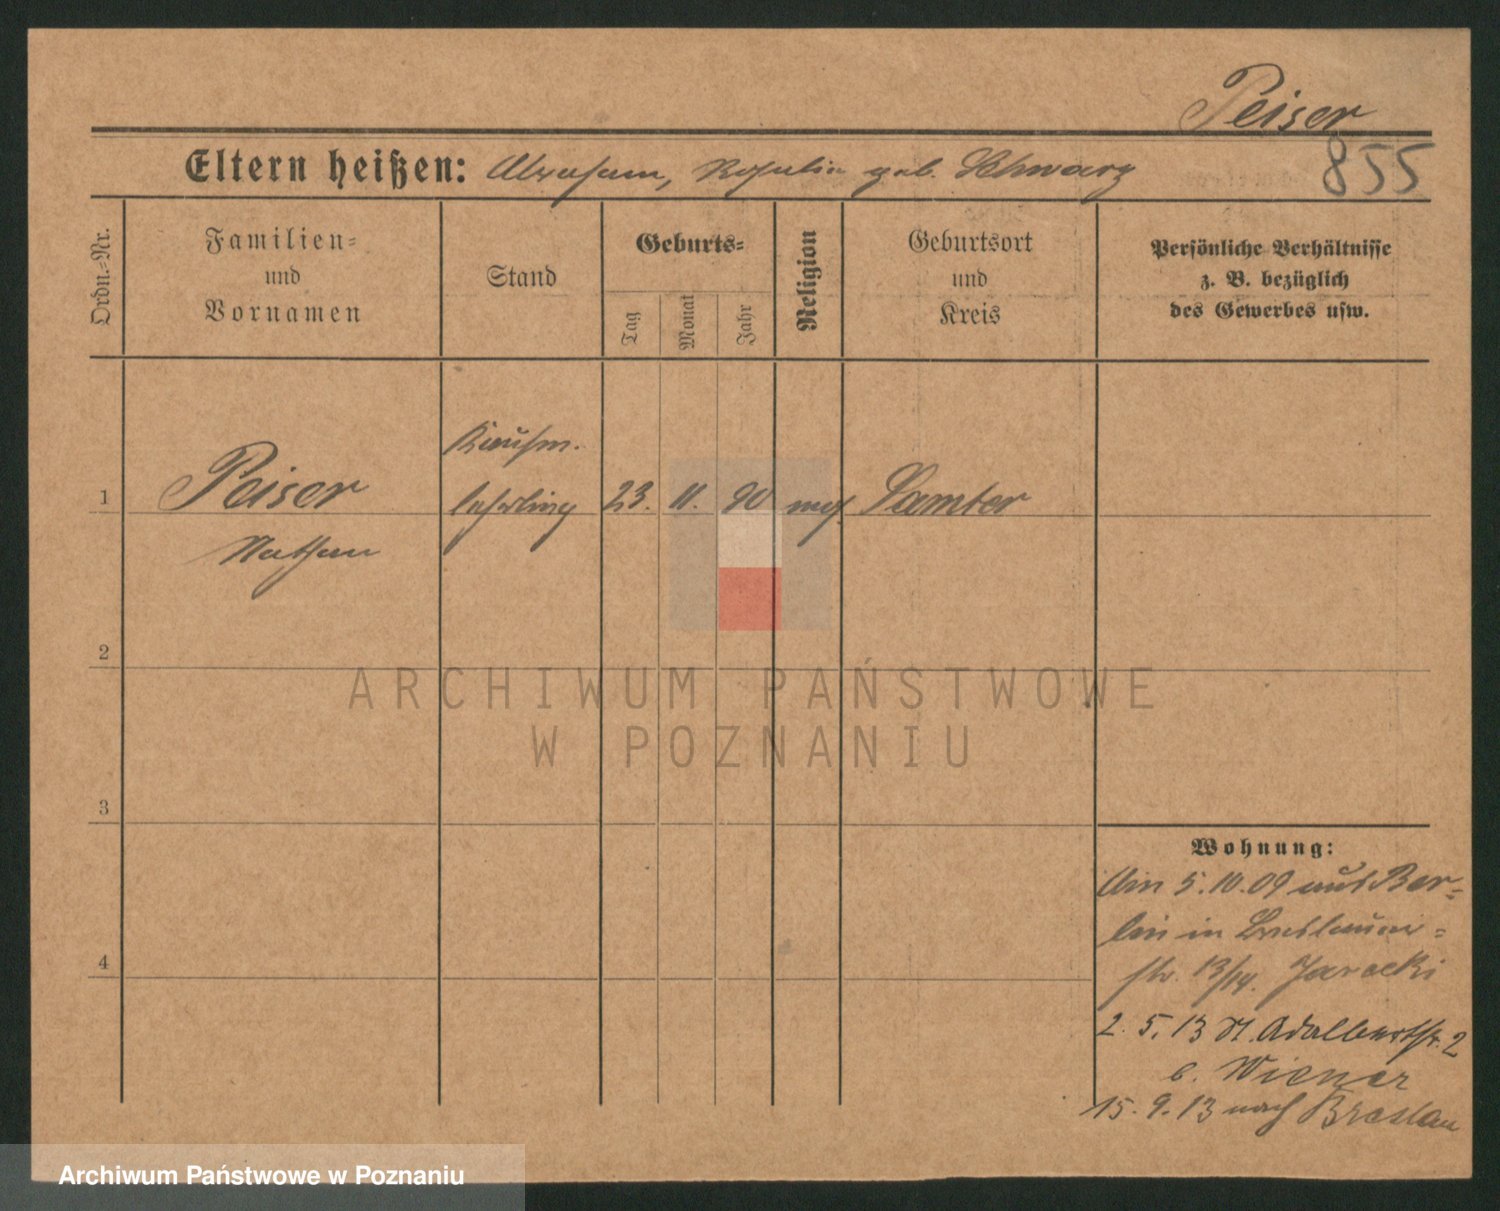 Peiser
Eltern heißen: Abraham, Rosalie geb. Schwarz
855
Ordn.-Nr.
Familien-
und
Vornamen
Stand
Geburts-
Tag
Monat
Jahr
Religion
Geburtsort
und
Kreis
Persönliche Verhältnisse
z. B. bezüglich
des Gewerbes usw.
Kaufm.
1 Peiser lehrling 23. 11. 90 mos. Samter
Nathan
2
3
4
Wohnung:
Am 5.10.09 aus Ber-
lin in Breslauer-
str. 13/14. Jarocki
2. 5. 13 St. Adalbertstr. 2
b. Wiener
15. 9. 13 nach Breslau
ARCHIWUM PAŃSTWOWE
W POZNANIU
Archiwum Państwowe w Poznaniu